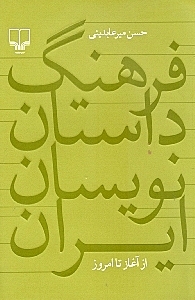 حسن میرعابدینی
فرهنگ
داستان
نویسان
ایران
از آغاز تا امروز